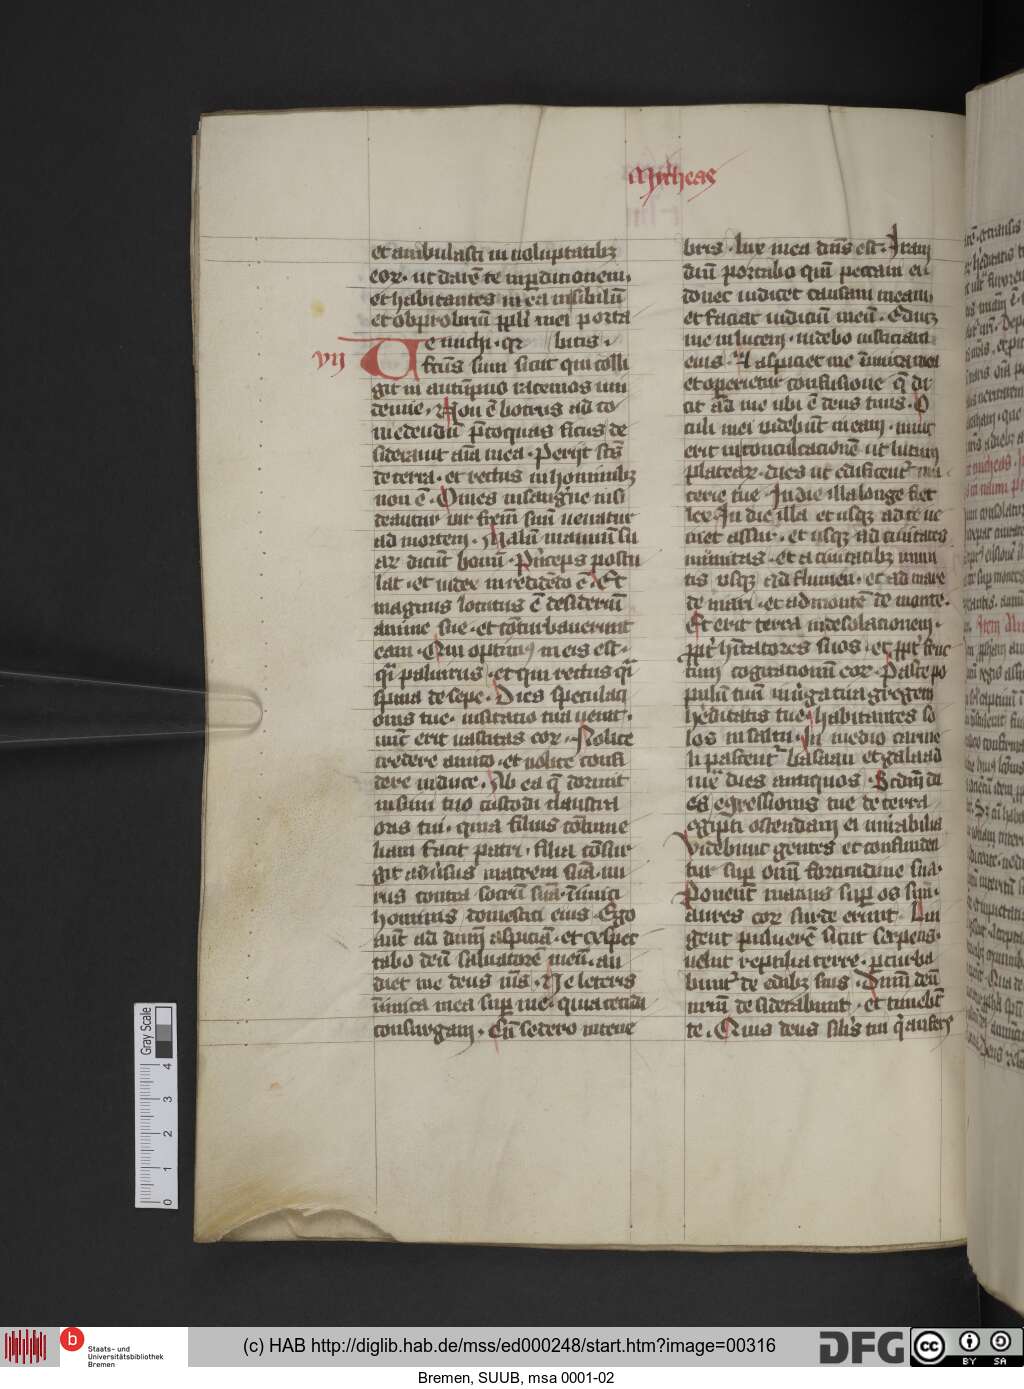 Mycheas
et ambulasti in uoluptatibꝫ
eoꝝ · ut darē te in ꝑdicionem ·
et habitantes in ea in sibilū
et obprobriū ppl̄i mei porta
vij
Ue michi · qꝛ bitis ·
fc̄us sum sicut qui colli
git in autūpno racemos uin
demie · Non ē botrus ad co
medendū p̄coquas ficus de
siderauit aīa mea · Perijt sc̄s
de terra · et rectus in hominibꝫ
non ē · Om̄es in sangⁱne insi
diantur vir frēm suū uenatur
ad mortem · Malū manuū su
aꝝ dicūt bonū · Pⁱnceps postu
lat · et iudex in reddēdo ē · Et
magnus locutus ē desideriū
anime sue · et cōturbauerunt
eam · Qui optimꝰ in eis est ·
qⁱ paliurus · et qui rectus qⁱ
spina de sepe · Dies speculaci
onis tue · uisitatio tua uenit ·
nūc erit uastitas eoꝝ · Nolite
credere amico · et nolite confi
dere in duce · Ab ea q̄ dormit
in sinu tuo custodi claustra
oris tui · quia filius cōtume
liam facit patri · filia cōsur
git aduⁱsus matrem suā · nu
rus contra socrū suā · īnimici
hominis domestici eius · Ego
aūt ad dn̄m aspiciā · et exspec
tabo deū saluatorē meū · au
diet me deus m̄s · Ne leteris
īnimica mea suꝑ me · quia cecidi
consurgam · Cū sedero in tene
bris · lux mea dn̄s est · Iram
dn̄i portabo qm̄ peccaui ei
donec iudicet causam meam
et faciat iudiciū meū · Educꝫ
me in lucem · uidebo iusticiam
eius · Et aspiciet me īnimica mea
et operietur confusione q̄ di
cit ad me ubi ē deus tuus · O
culi mei uidebūt in eam · nunc
erit in conculcacionē ut lutum
plateaꝝ · dies ut edificentʳ ma
cerie tue · In die illa longe fiet
lex · In die illa et usqꝫ ad te ue
niet assur · et usqꝫ ad ciuitates
munitas · et a ciuitatibꝫ muni
tis usqꝫ ad flumen · et ad mare
de mari · et ad montē de monte ·
Et erit terra in desolacionem ·
ꝓpt̄ hītatores suos · et ꝓpt̄ fruc
tum cogitationum eoꝝ · Pasce po
pulū tuū in uⁱga tua gregem
hereditatis tue · habitantes so
los in saltu · In medio carme
li pascentʳ basan et galaad
iux̄ dies antiquos · Scdm̄ di
es egressionis tue de terra
egipti ostendam ei mirabilia
Videbunt gentes et confunden
tur suꝑ om̄i fortitudine sua ·
Ponent manus suꝑ os suū ·
aures eoꝝ surde erunt · Lin
gent puluerē sicut serpens ·
uelut reptilia terre · ꝑturba
buntʳ de edibꝫ suis · Dn̄m deū
nr̄m desiderabunt · et timebūt
te · Quis deus silis tui qⁱ aufers
Gray Scale
0 1 2 3 4
b
Staats- und
Universitätsbibliothek
Bremen
(c) HAB http://diglib.hab.de/mss/ed000248/start.htm?image=00316
DFG
cc BY SA
Bremen, SUUB, msa 0001-02